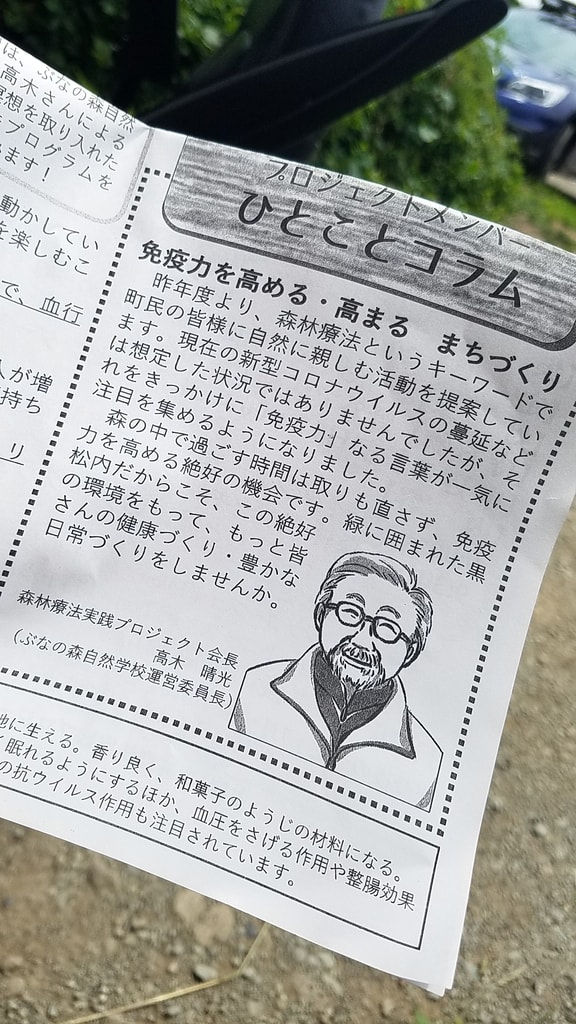 は、ぶなの森自然
高木さんによる
想を取り入れた
プログラムを
ます!
動かしてい
を楽しむこ
で、血行
人が増
持ち
り
プロジェクトメンバー
ひとことコラム
免疫力を高める・高まる まちづくり
昨年度より、森林療法というキーワードで
町民の皆様に自然に親しむ活動を提案してい
ます。現在の新型コロナウイルスの蔓延など
は想定した状況ではありませんでしたが、そ
れをきっかけに「免疫力」なる言葉が一気に
注目を集めるようになりました。
森の中で過ごす時間は取りも直さず、免疫
力を高める絶好の機会です。緑に囲まれた黒
松内だからこそ、この絶好
の環境をもって、もっと皆
さんの健康づくり・豊かな
日常づくりをしませんか。
森林療法実践プロジェクト会長
高木 晴光
(ぶなの森自然学校運営委員長)
地に生える。香り良く、和菓子のようじの材料になる。
眠れるようにするほか、血圧をさげる作用や整腸効果
の抗ウイルス作用も注目されています。